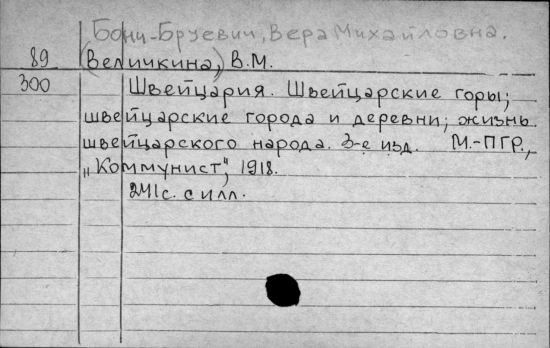 Бонч-Бруевич, Вера Михайловна.
89 (Величкина,) В.М.
300 Швейцария. Швейцарские горы;
швейцарские города и деревни; жизнь
швейцарского народа. 3-е изд. М.-ПГР.,
„Коммунист", 1918.
241с. с илл.